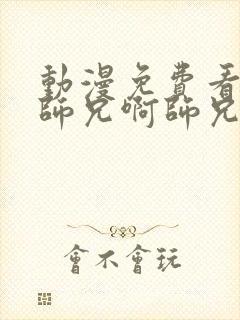 動漫免費看
師兄啊師兄
會不會玩